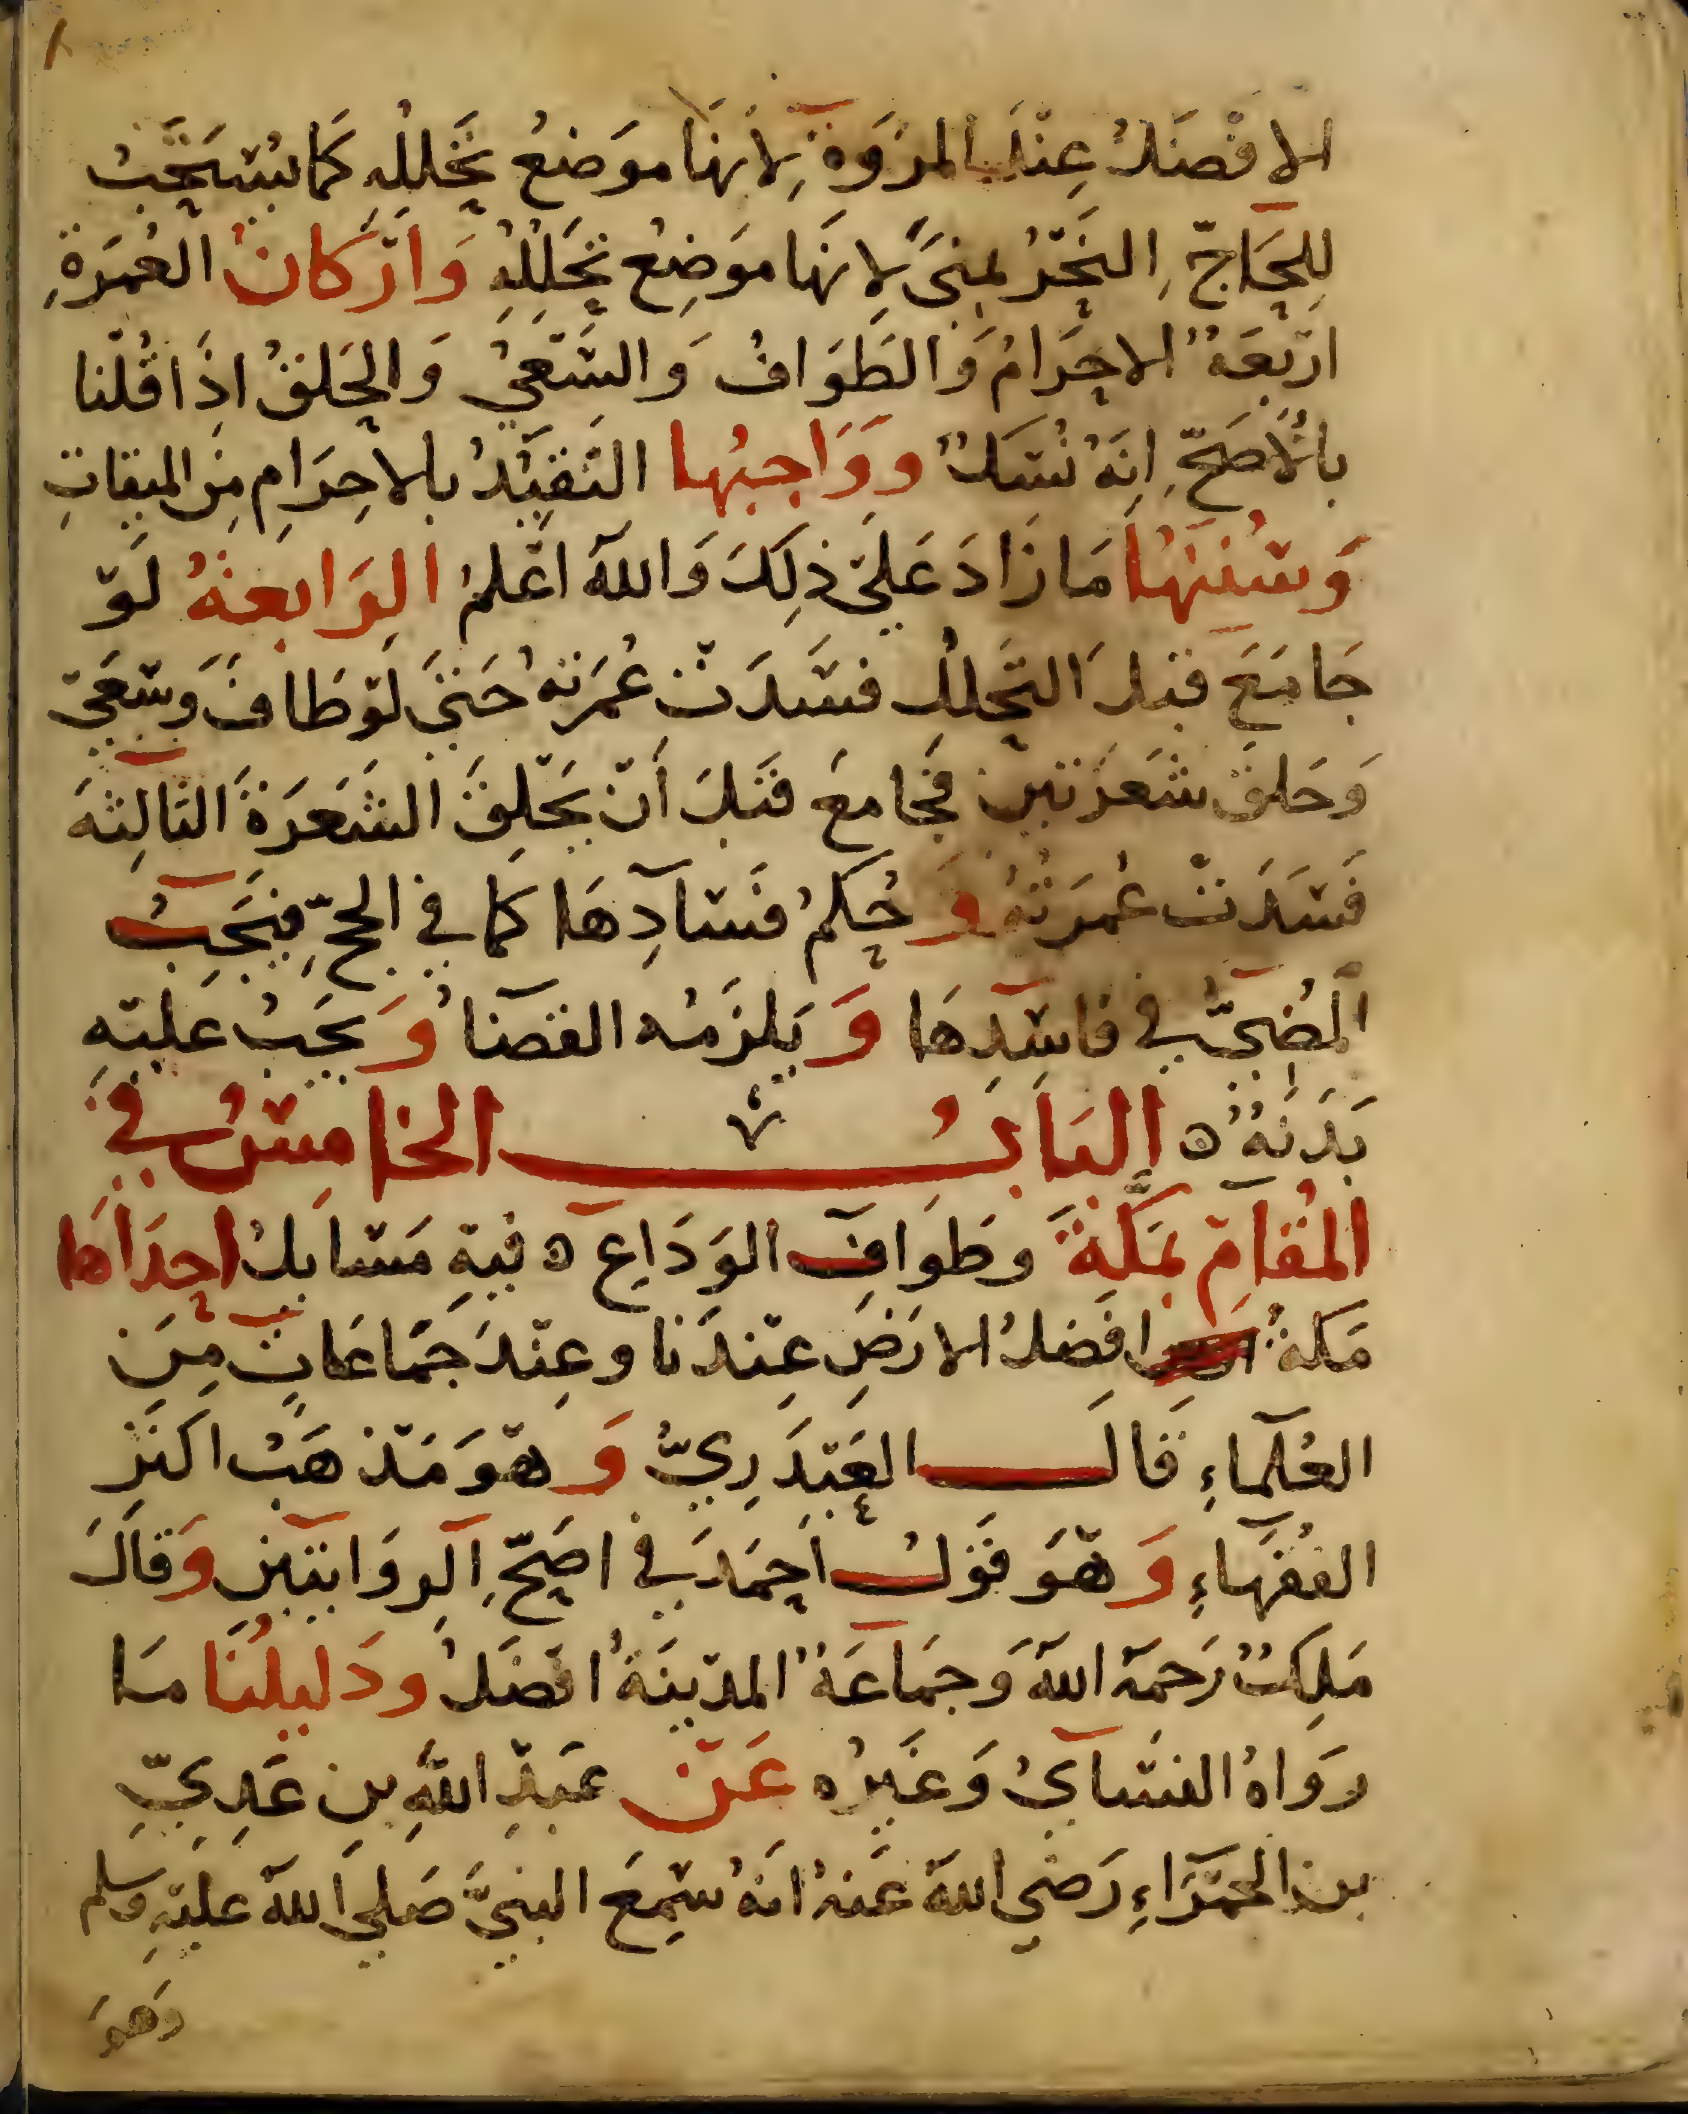 ٨
الافضَلُ عِنْدَ المرْوَةِ لِانهَا موَضعُ تحَللِهِ كَمَا يُسْتَحَبُّ
لِلحَاجِّ النَّحْرُ بمِنىً لِانهَا موَضِعُ تَحَلُلِهِ وَأرْكانُ العُمرَةِ
ارْبعَةٌ الاحِرَامُ وَالطَوَافُ وَالسَّعْيُ وَالحَلقُ اذَا قُلْنا
بالأَصَحِّ انهُ نُسَكٌ ووَاجِبُها التَّقَيُّدُ بالاحِرَامِ مِنَ الميقاتِ
وَسُننُهَا مَا زَادَ عَلىَ ذلِكَ وَاللهُ اعْلمُ الرَابعةُ لَوْ
جَامَعَ قبْلَ التَحَللُ فسَدَتْ عُمرَتهُ حَتىَ لَوْ طَافَ وَسَعَىْ
وَحَلقَ شَعرَتيْنِ فجَامعَ قَبْلَ أنْ يَحْلِقَ الشَعَرَةَ الثالِثةَ
فَسَدَتْ عُمرَتهُ وَحُكمُ فسَادِهَا كما في الحجِّ فيَجِبُ
المُضِيُّ في فاسِدِهَا وَيَلزَمُه القَضَاُ وَيجَبُ عَليْهِ
بَدَنَةٌ ه البَابُ الخامِسُ في
المُقامِ بمَكَةَ وطَوَافِ الوَدَاعِ ه فيهِ مَسَايلُ احِدَاهَا
مَكةُ افضَلُ الارَضِ عِنْدَنا وعِنْدَ جَمَاعَاتٍ مِنَ
العُلَماءِ قالَ العَبْدَرِيُّ وَهْوَ مَذهَبُ اكثرِ
الفُقهَاءِ وَهْوَ قوْلُ احمَدَ في اصَحِّ الرِوَايتيْنِ وَقَالَ
مَلِكٌ رَحمَهُ اللهُ وَجمَاعَةٌ المدْينَةُ افضَلُ ودَليلُنَا مَا
رَوَاهُ النسَّايُ وَغَيرُه عَنْ عَبدِ اللهِ بنِ عَدِيِّ
بنِ الحَمْرَاءِ رَضيَ اللهُ عَنهُ انهُ سَمِعَ النبيَّ صَلى اللهُ عَليْهِ وسلم
وَهوَ